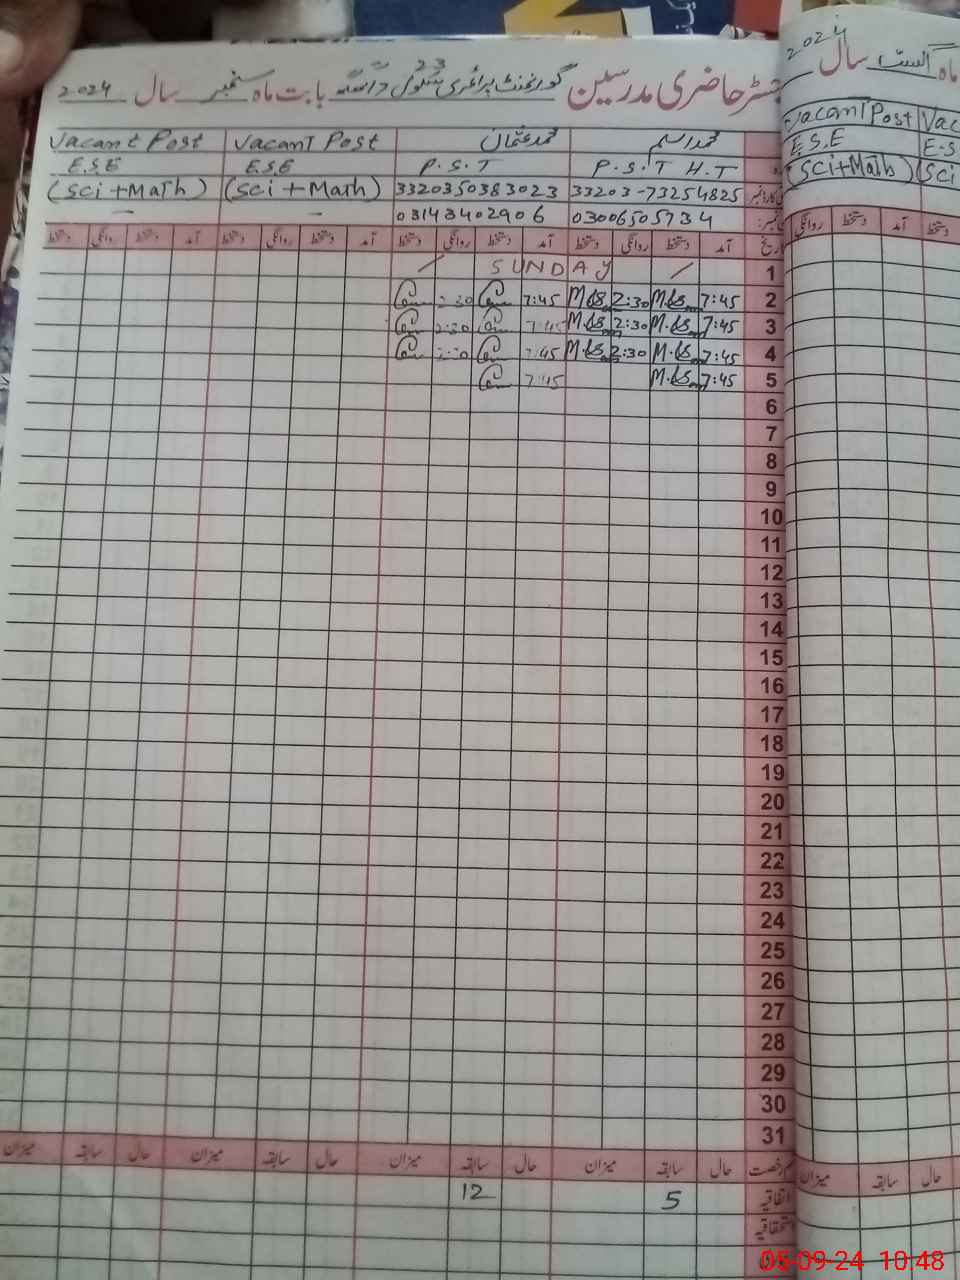 رجسٹر حاضری مدرسین گورنمنٹ پرائمری سکول 23 بابت ماہ ستمبر سال 2024
محمد اسلم محمد عثمان Vacant Post Vacant Post
P.S.T H.T P.S.T E.S.E E.S.E
33203-73254825 3320350383023 (Sci+Math) (Sci+Math)
03006505734 03143402906 – –
تاریخ آمد دستخط روانگی دستخط آمد دستخط روانگی دستخط آمد دستخط روانگی دستخط آمد دستخط روانگی دستخط
1 SUNDAY
2 7:45 2:30 7:45 2:30
3 7:45 2:30 7:45 2:30
4 7:45 2:30 7:45 2:30
5 7:45 7:45
6
7
8
9
10
11
12
13
14
15
16
17
18
19
20
21
22
23
24
25
26
27
28
29
30
31
حال سابقہ میزان حال سابقہ میزان حال سابقہ میزان حال سابقہ میزان
اتفاقیہ 5 12
استحقاقیہ
ماہ اگست سال 2024
Vacant Post Vac
E.S.E E.S
(Sci+Math) (Sci
دستخط آمد دستخط روانگی
حال سابقہ میزان
05-09-24 10:48